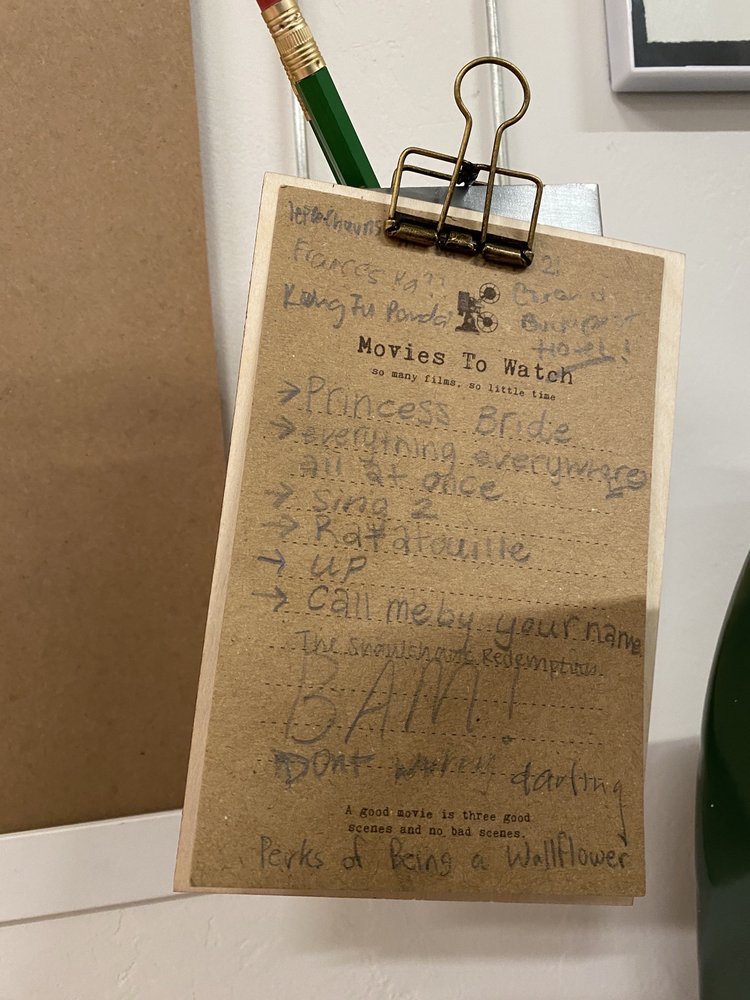 Frances Ha??
2!
Kung Fu Panda
Grand
Budapest
HOTEL!
Movies To Watch
so many films, so little time
→ Princess Bride
→ everything everywhere
all at once
→ Sing 2
→ Ratatouille
→ UP
→ Call me by your name
The Shawshank Redemption
BAM!
Dont worry darling
A good movie is three good
scenes and no bad scenes.
Perks of Being a Wallflower